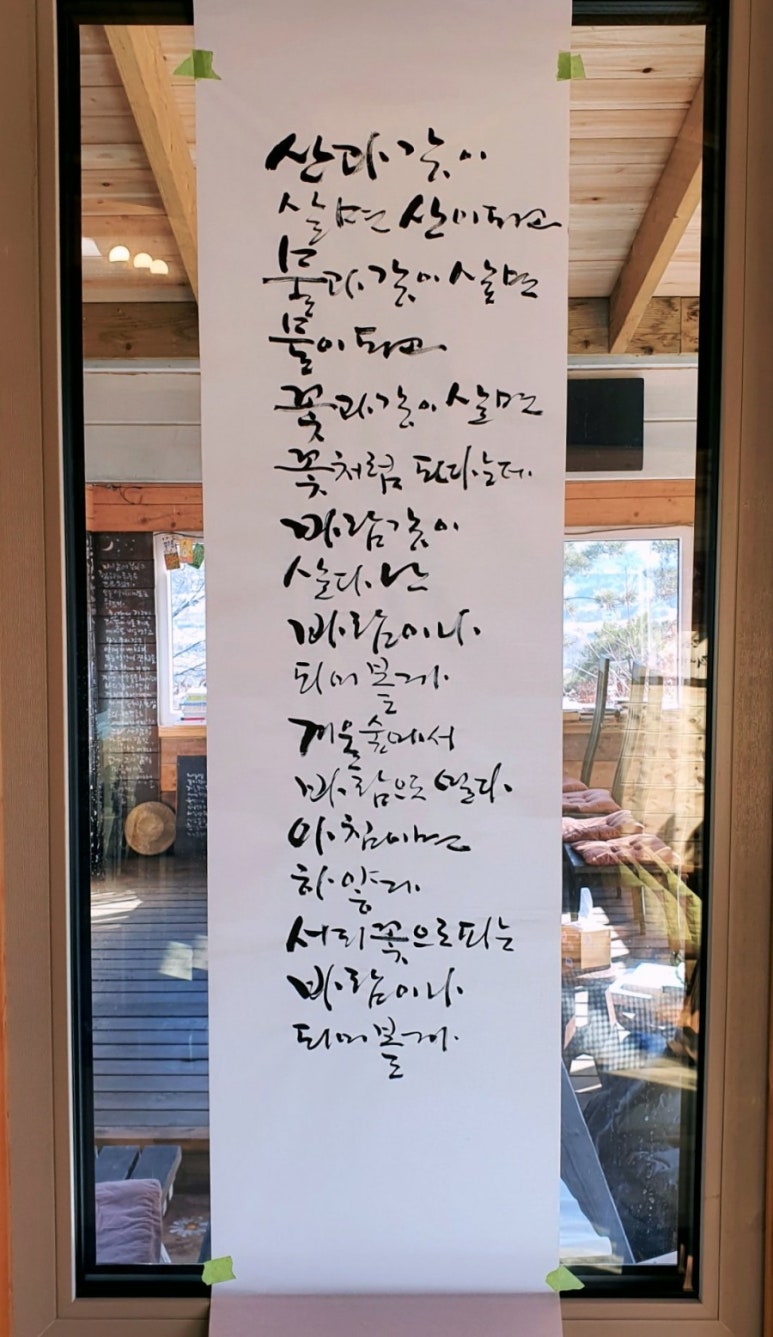 산과 같이
살면 산이되고
물과 같이 살면
물이 되고
꽃과 같이 살면
꽃처럼 핀다는데
바람같이
살다 난
바람이나
되어볼까
겨울숲에서
바람으로 얼다
아침이면
하얗게
서리꽃으로피는
바람이나
되어볼까